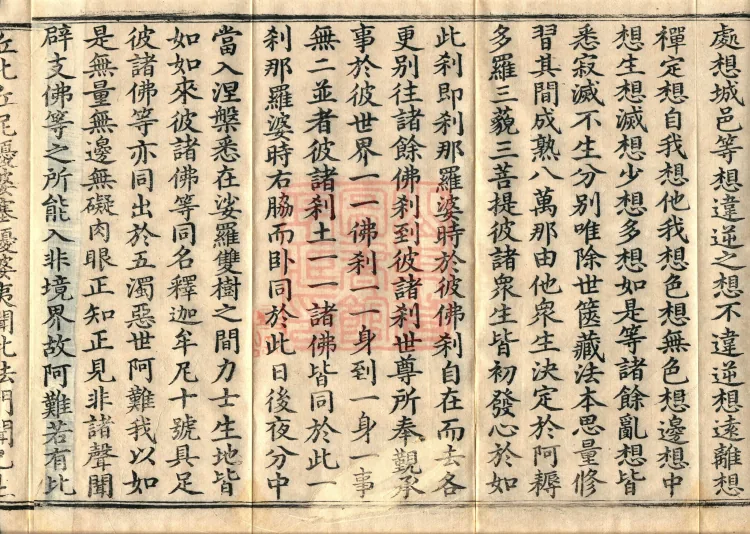 處想城邑等想違逆之想不違逆想遠離想
禪定想自我想他我想色想無色想邊想中
想生想滅想少想多想如是等諸餘亂想皆
悉寂滅不生分別唯除世篋藏法本思量修
習其間成熟八萬那由他衆生決定於阿耨
多羅三藐三菩提彼諸衆生皆初發心於如
此刹即刹那羅婆時於彼佛刹自在而去各
更別往諸餘佛刹到彼諸刹世尊所奉覲承
事於彼世界一一佛刹一一身到一身一事
無二並者彼諸刹土一一諸佛皆同於此一
刹那羅婆時右脇而卧同於此日後夜分中
當入涅槃悉在娑羅雙樹之間力士生地皆
如如來彼諸佛等同名釋迦牟尼十號具足
彼諸佛等亦同出於五濁惡世阿難我以如
是無量無邊無礙肉眼正知正見非諸聲聞
辟支佛等之所能入非境界故阿難若有比
丘比丘尼優婆塞優婆夷聞此法門聞已